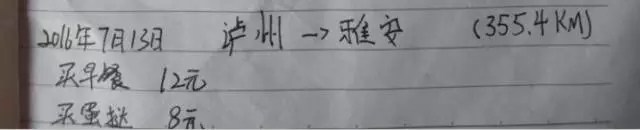 2016年7月13日 泸州→雅安 (355.4KM)
买早餐 12元
买蛋挞 8元